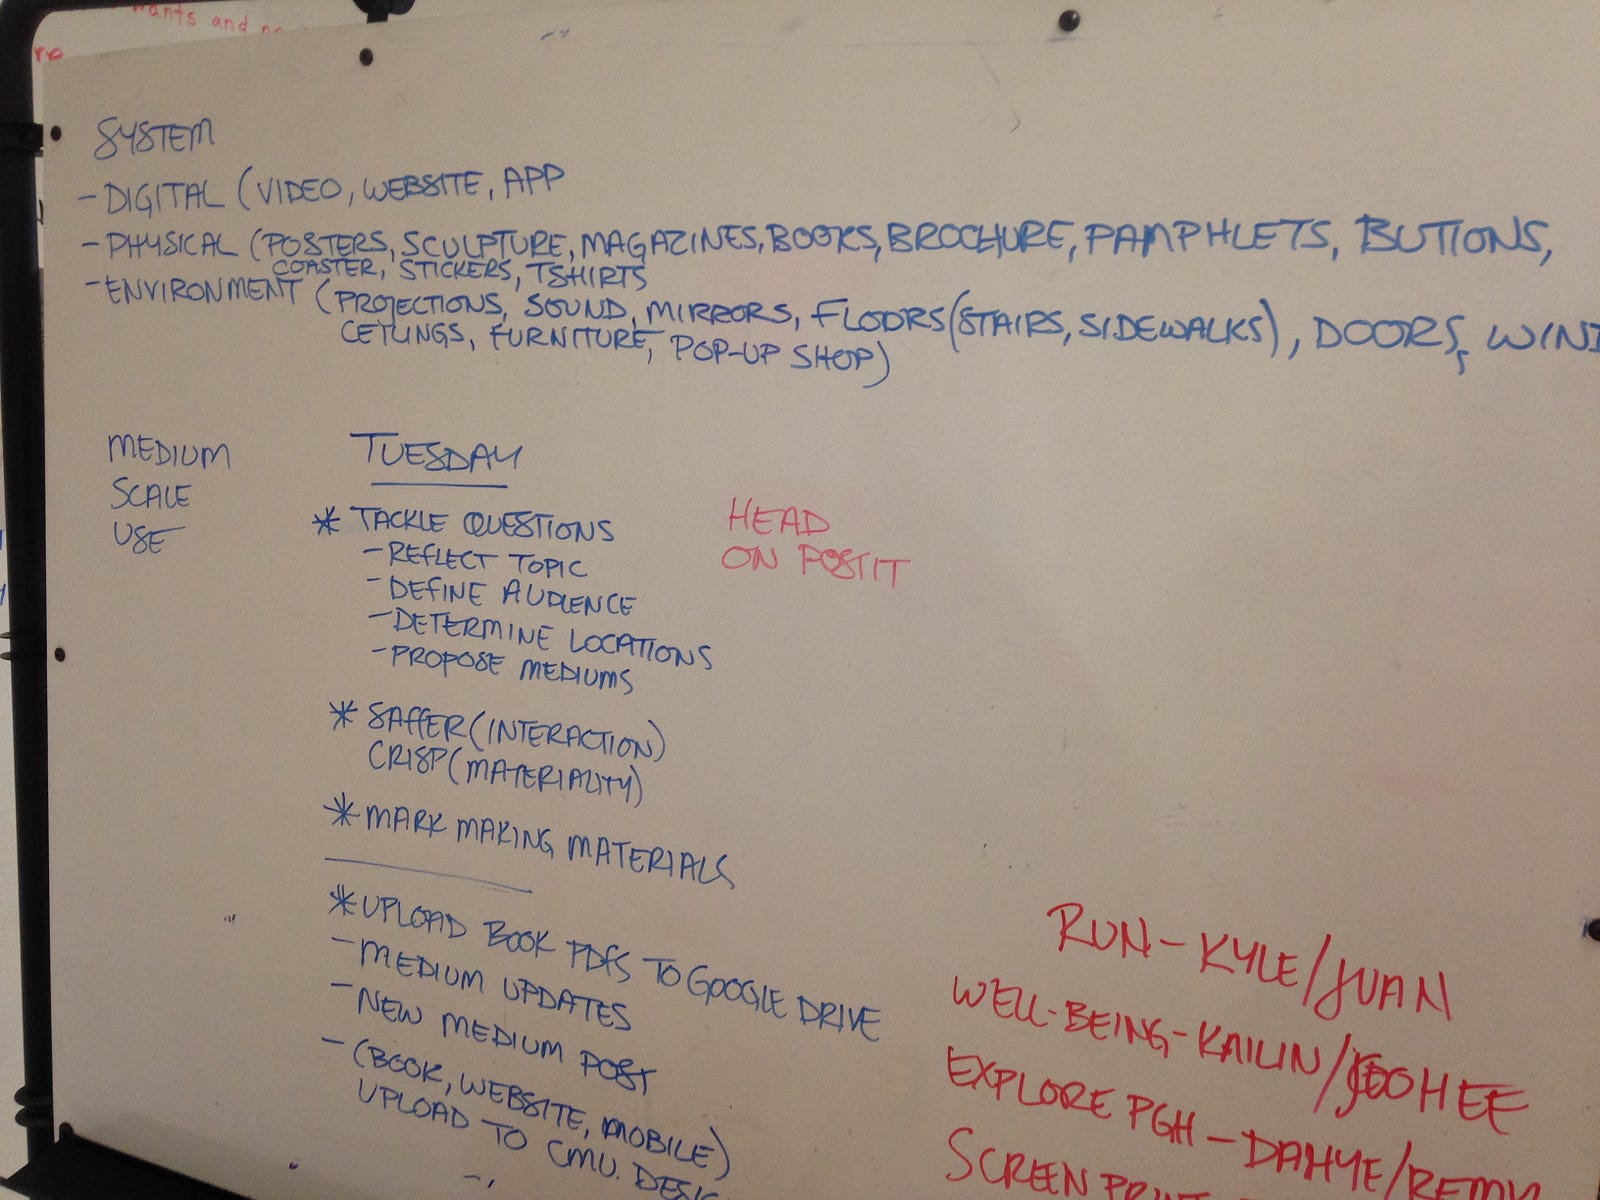 wants and
SYSTEM
- DIGITAL (VIDEO, WEBSITE, APP
- PHYSICAL (POSTERS, SCULPTURE, MAGAZINES, BOOKS, BROCHURE, PAMPHLETS, BUTTONS,
COASTER, STICKERS, TSHIRTS
- ENVIRONMENT (PROJECTIONS, SOUND, MIRRORS, FLOORS (STAIRS, SIDEWALKS), DOORS,
CEILINGS, FURNITURE, POP-UP SHOP)
MEDIUM
SCALE
USE
TUESDAY
* TACKLE QUESTIONS
- REFLECT TOPIC
- DEFINE AUDIENCE
- DETERMINE LOCATIONS
- PROPOSE MEDIUMS
* SAFFER (INTERACTION)
CRISP (MATERIALITY)
* MARK MAKING MATERIALS
* UPLOAD BOOK PDFS TO GOOGLE DRIVE
- MEDIUM UPDATES
- NEW MEDIUM POST
- (BOOK, WEBSITE, MOBILE)
UPLOAD TO CMU.
HEAD
ON POSTIT
RUN - KYLE/JUAN
WELL-BEING - KAILIN/JOOHEE
EXPLORE PGH - DAHYE/
SCREEN